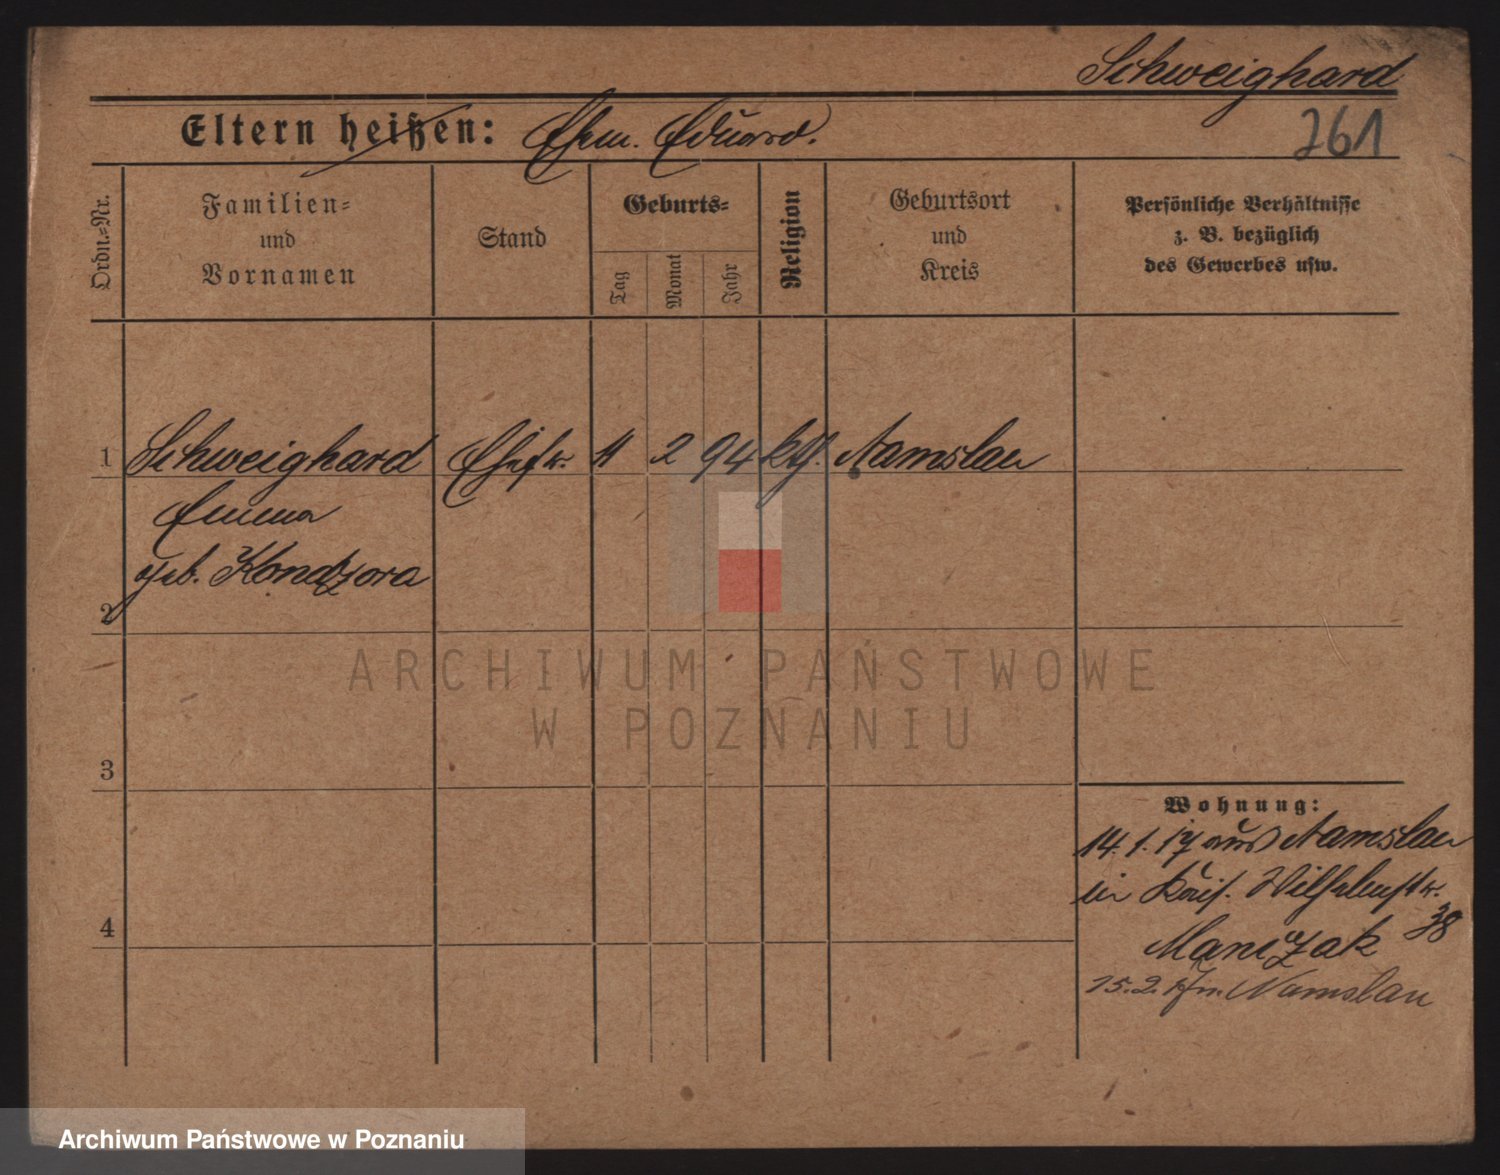 Schweighard
Eltern heißen: Ehem. Eduard.
261
Ordn.-Nr.
Familien-
und
Vornamen
Stand
Geburts-
Tag
Monat
Jahr
Religion
Geburtsort
und
Kreis
Persönliche Verhältnisse
z. B. bezüglich
des Gewerbes usw.
1 Schweighard Ehefr. 11 2 94 kth. Namslau
Emma
geb. Kondzora
2
ARCHIWUM PAŃSTWOWE
W POZNANIU
3
Wohnung:
14.1.17 aus Namslau
in Kais. Wilhelmstr.
38
Manczak
15.2.17 n. Namslau
4
Archiwum Państwowe w Poznaniu